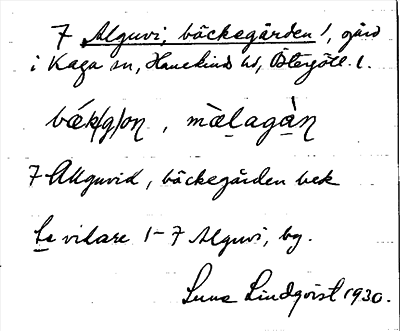 7 Alguvi, bäckegården 1, gård
i Kaga sn, Hanekind hd, Östergötl. l.
bǽk(g)oŋ, mä̀lagàn
7 Allguvid, bäckegården bek
Se vidare 1-7 Alguvi, by.
Sune Lindqvist 1930.